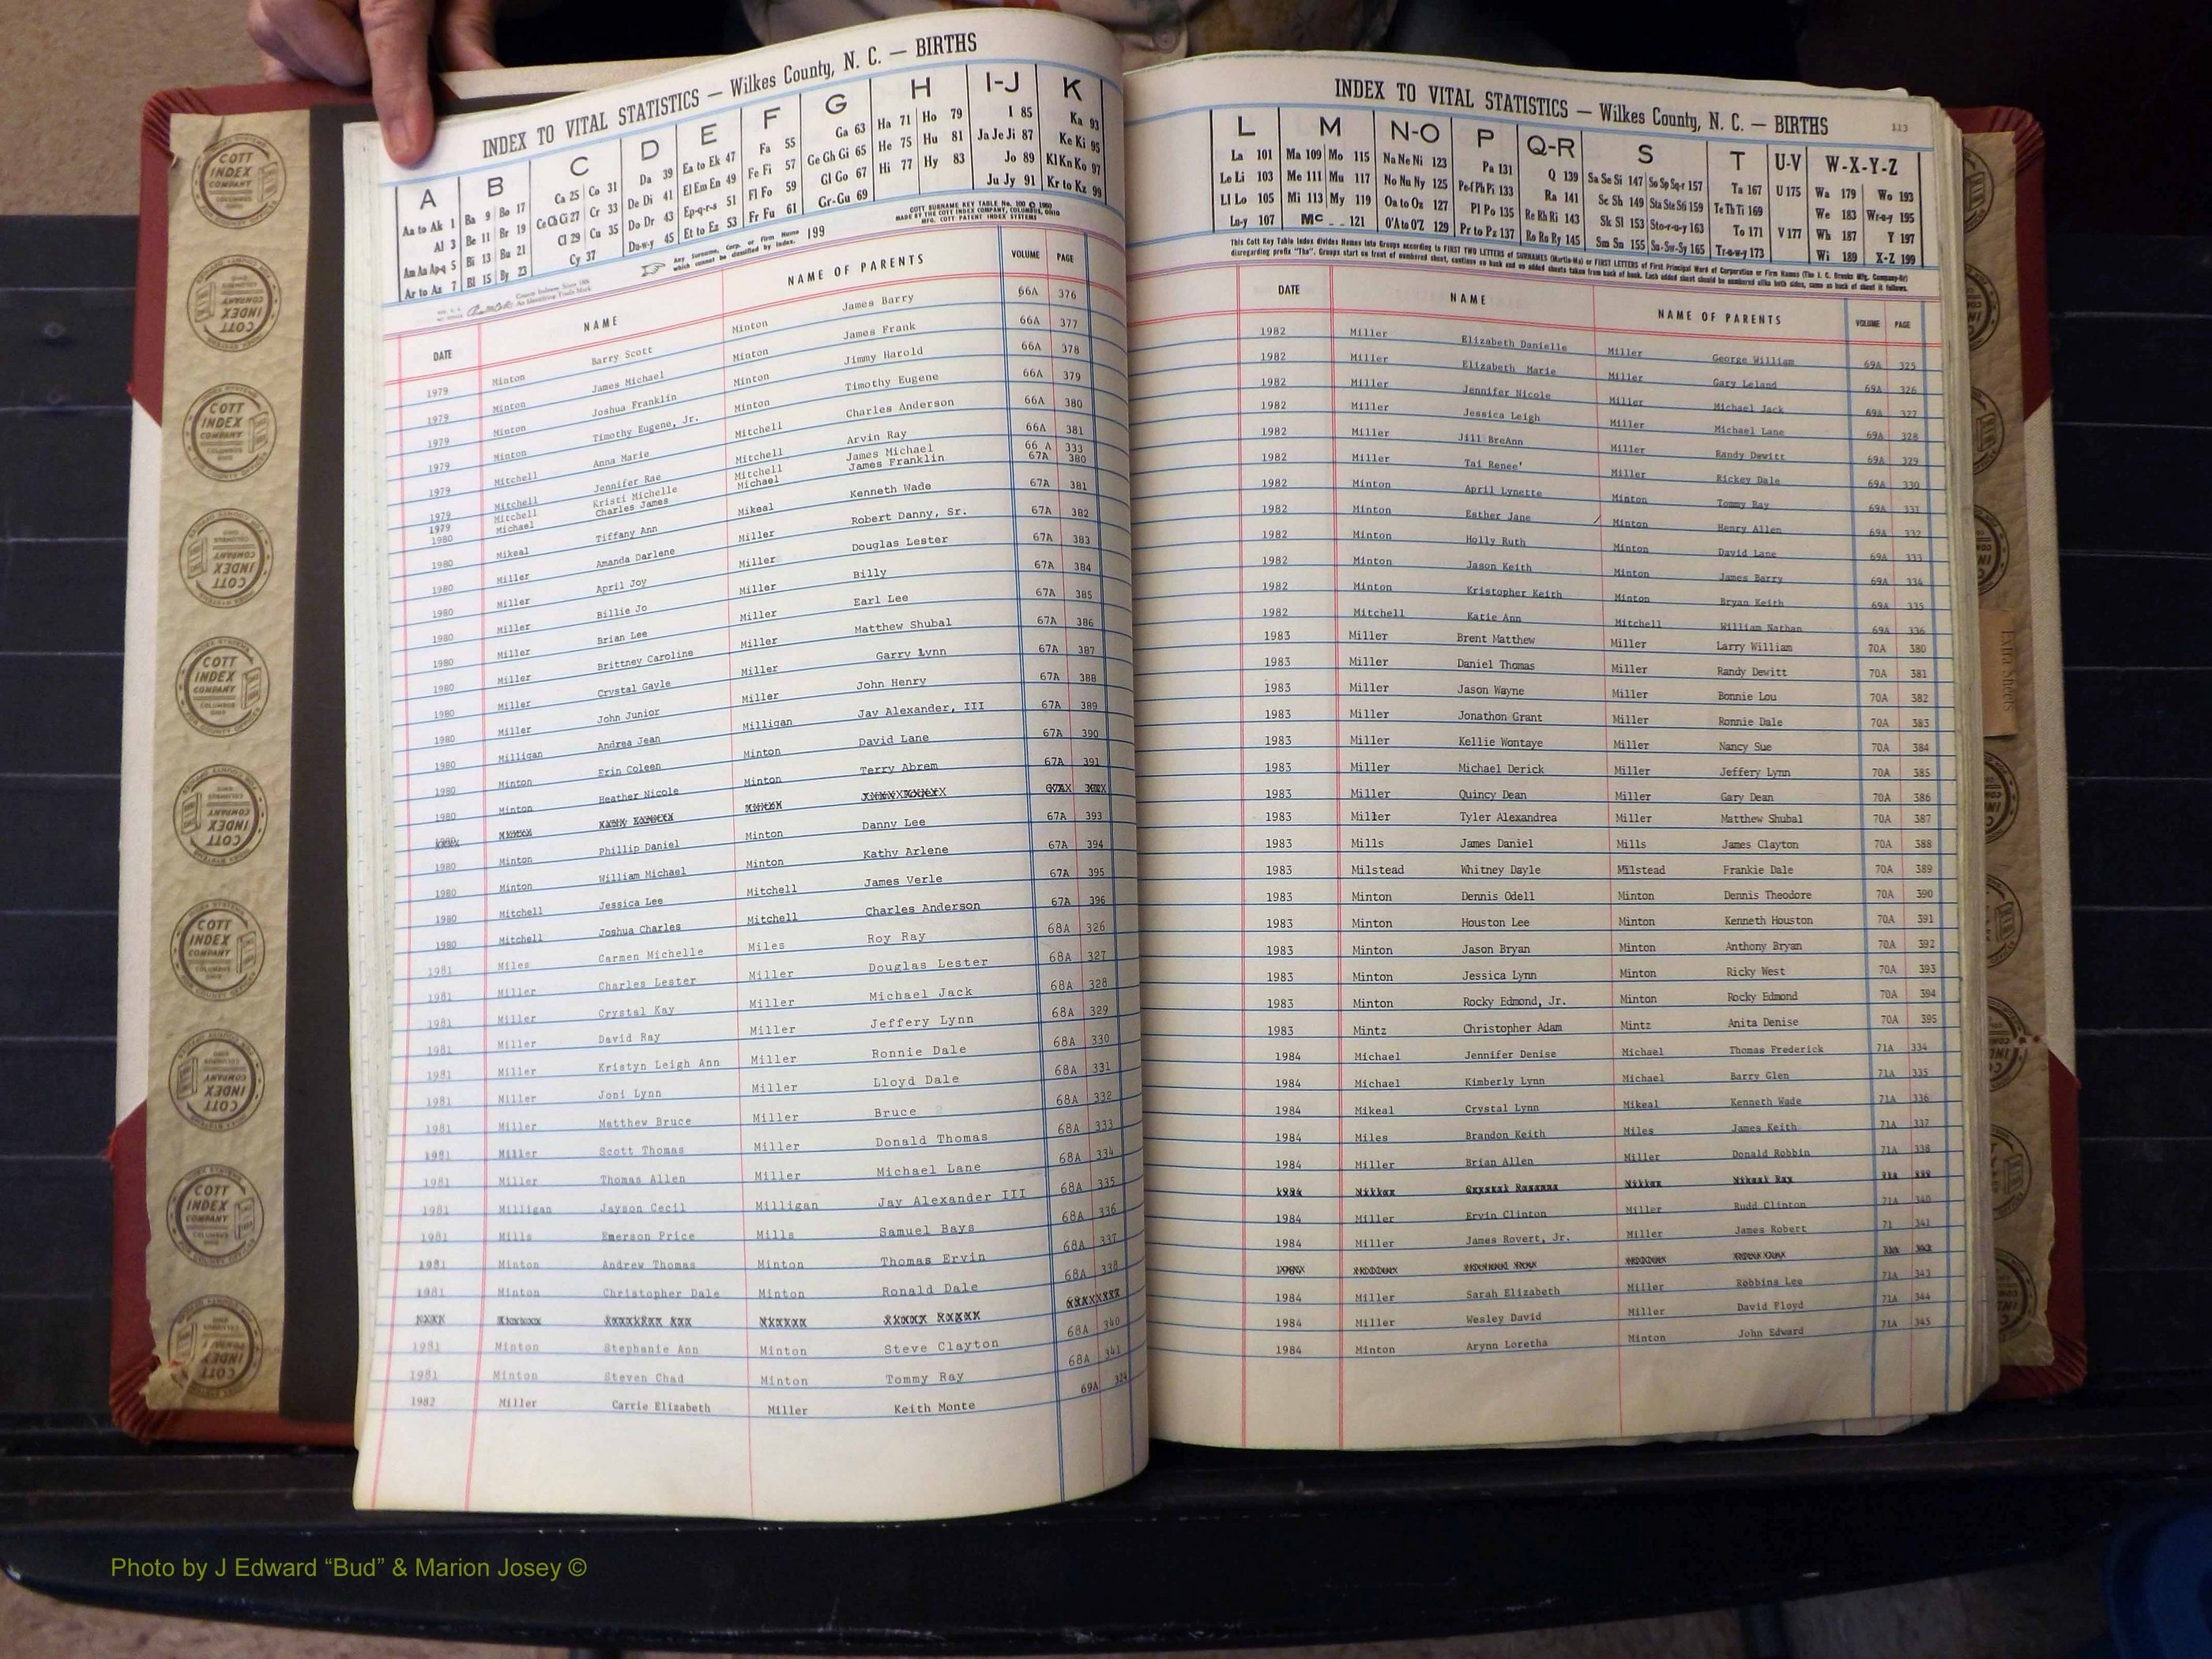 INDEX TO VITAL STATISTICS — Wilkes County, N. C. — BIRTHS
A B C D E F G H I-J K
Aa to Ak 1 Ba 9 Bo 17 Ca 25 Co 31 Da 39 Ea to Ek 47 Fa 55 Ga 63 Ha 71 Ho 79 I 85 Ka 93
Al 3 Be 11 Br 19 Ce Ch Ci 27 Cr 33 De Di 41 El Em En 49 Fe Fi 57 Ge Gh Gi 65 He 75 Hu 81 Ja Je Ji 87 Ke Ki 95
Am An Ap-q 5 Bi 13 Bu 21 Cl 29 Cu 35 Do Dr 43 Ep-q-r-s 51 Fl Fo 59 Gl Go 67 Hi 77 Hy 83 Jo 89 Kl Kn Ko 97
Ar to Az 7 Bl 15 By 23 Cy 37 Du-w-y 45 Et to Ez 53 Fr Fu 61 Gr-Gu 69 Ju Jy 91 Kr to Kz 99
Any Surname, Corp. or Firm Name which cannot be classified by index. 199
COTT SURNAME KEY TABLE No. 100 © 1960
MADE BY THE COTT INDEX COMPANY, COLUMBUS, OHIO
MFG. COTT PATENT INDEX SYSTEMS
DATE NAME NAME OF PARENTS VOLUME PAGE
1979 Minton Barry Scott Minton James Barry 66A 376
1979 Minton James Michael Minton James Frank 66A 377
1979 Minton Joshua Franklin Minton Jimmy Harold 66A 378
1979 Minton Timothy Eugene, Jr. Minton Timothy Eugene 66A 379
1979 Mitchell Anna Marie Mitchell Charles Anderson 66A 380
1979 Mitchell Jennifer Rae Mitchell Arvin Ray 66A 381
1979 Mitchell Kristi Michelle Mitchell James Michael 66 A 333
1980 Michael Charles James Michael James Franklin 67A 380
1980 Mikeal Tiffany Ann Mikeal Kenneth Wade 67A 381
1980 Miller Amanda Darlene Miller Robert Danny, Sr. 67A 382
1980 Miller April Joy Miller Douglas Lester 67A 383
1980 Miller Billie Jo Miller Billy 67A 384
1980 Miller Brian Lee Miller Earl Lee 67A 385
1980 Miller Brittney Caroline Miller Matthew Shubal 67A 386
1980 Miller Crystal Gayle Miller Garry Lynn 67A 387
1980 Miller John Junior Miller John Henry 67A 388
1980 Milligan Andrea Jean Milligan Jay Alexander, III 67A 389
1980 Minton Erin Coleen Minton David Lane 67A 390
1980 Minton Heather Nicole Minton Terry Abrem 67A 391
1980 Minton Phillip Daniel Minton Danny Lee 67A 393
1980 Minton William Michael Minton Kathy Arlene 67A 394
1980 Mitchell Jessica Lee Mitchell James Verle 67A 395
1980 Mitchell Joshua Charles Mitchell Charles Anderson 67A 396
1981 Miles Carmen Michelle Miles Roy Ray 68A 326
1981 Miller Charles Lester Miller Douglas Lester 68A 327
1981 Miller Crystal Kay Miller Michael Jack 68A 328
1981 Miller David Ray Miller Jeffery Lynn 68A 329
1981 Miller Kristyn Leigh Ann Miller Ronnie Dale 68A 330
1981 Miller Joni Lynn Miller Lloyd Dale 68A 331
1981 Miller Matthew Bruce Miller Bruce 68A 332
1981 Miller Scott Thomas Miller Donald Thomas 68A 333
1981 Miller Thomas Allen Miller Michael Lane 68A 334
1981 Milligan Jayson Cecil Milligan Jay Alexander III 68A 335
1981 Mills Emerson Price Mills Samuel Bays 68A 336
1981 Minton Andrew Thomas Minton Thomas Ervin 68A 337
1981 Minton Christopher Dale Minton Ronald Dale 68A 338
1981 Minton Stephanie Ann Minton Steve Clayton 68A 340
1981 Minton Steven Chad Minton Tommy Ray 68A 341
1982 Miller Carrie Elizabeth Miller Keith Monte 69A 324
INDEX TO VITAL STATISTICS — Wilkes County, N. C. — BIRTHS 113
L M N-O P Q-R S T U-V W-X-Y-Z
La 101 Ma 109 Mo 115 Na Ne Ni 123 Pa 131 Q 139 Sa Se Si 147 So Sp Sq-r 157 Ta 167 U 175 Wa 179 Wo 193
Le Li 103 Me 111 Mu 117 No Nu Ny 125 Pe-f Ph Pi 133 Ra 141 Sc Sh 149 Sta Ste Sti 159 Te Th Ti 169 We 183 Wr-u-y 195
Ll Lo 105 Mi 113 My 119 Oa to Oz 127 Pl Po 135 Re Rh Ri 143 Sk Sl 153 Sto-r-u-y 163 To 171 V 177 Wh 187 Y 197
Lu-y 107 Mc 121 O'A to O'Z 129 Pr to Pz 137 Ro Ru Ry 145 Sm Sn 155 Su-Sw-Sy 165 Tr-u-w-y 173 Wi 189 X-Z 199
This Cott Key Table Index divides Names into Groups according to FIRST TWO LETTERS of SURNAMES (Martin-Ma) or FIRST LETTERS of First Principal Word of Corporation or Firm Names (The I. C. Brooks Mfg. Company-Br)
disregarding prefix "The". Groups start on front of numbered sheet, continue on back and on added sheets taken from back of book. Each added sheet should be numbered alike both sides, same as back of sheet it follows.
DATE NAME NAME OF PARENTS VOLUME PAGE
1982 Miller Elizabeth Danielle Miller George William 69A 325
1982 Miller Elizabeth Marie Miller Gary Leland 69A 326
1982 Miller Jennifer Nicole Miller Michael Jack 69A 327
1982 Miller Jessica Leigh Miller Michael Lane 69A 328
1982 Miller Jill BreAnn Miller Randy Dewitt 69A 329
1982 Miller Tai Renee' Miller Rickey Dale 69A 330
1982 Minton April Lynette Minton Tommy Ray 69A 331
1982 Minton Esther Jane Minton Henry Allen 69A 332
1982 Minton Holly Ruth Minton David Lane 69A 333
1982 Minton Jason Keith Minton James Barry 69A 334
1982 Minton Kristopher Keith Minton Bryan Keith 69A 335
1982 Mitchell Katie Ann Mitchell William Nathan 69A 336
1983 Miller Brent Matthew Miller Larry William 70A 380
1983 Miller Daniel Thomas Miller Randy Dewitt 70A 381
1983 Miller Jason Wayne Miller Bonnie Lou 70A 382
1983 Miller Jonathon Grant Miller Ronnie Dale 70A 383
1983 Miller Kellie Wontaye Miller Nancy Sue 70A 384
1983 Miller Michael Derick Miller Jeffery Lynn 70A 385
1983 Miller Quincy Dean Miller Gary Dean 70A 386
1983 Miller Tyler Alexandrea Miller Matthew Shubal 70A 387
1983 Mills James Daniel Mills James Clayton 70A 388
1983 Milstead Whitney Dayle Milstead Frankie Dale 70A 389
1983 Minton Dennis Odell Minton Dennis Theodore 70A 390
1983 Minton Houston Lee Minton Kenneth Houston 70A 391
1983 Minton Jason Bryan Minton Anthony Bryan 70A 392
1983 Minton Jessica Lynn Minton Ricky West 70A 393
1983 Minton Rocky Edmond, Jr. Minton Rocky Edmond 70A 394
1983 Mintz Christopher Adam Mintz Anita Denise 70A 395
1984 Michael Jennifer Denise Michael Thomas Frederick 71A 334
1984 Michael Kimberly Lynn Michael Barry Glen 71A 335
1984 Mikeal Crystal Lynn Mikeal Kenneth Wade 71A 336
1984 Miles Brandon Keith Miles James Keith 71A 337
1984 Miller Brian Allen Miller Donald Robbin 71A 338
1984 Miller Ervin Clinton Miller Rudd Clinton 71A 340
1984 Miller James Rovert, Jr. Miller James Robert 71 341
1984 Miller Sarah Elizabeth Miller Robbins Lee 71A 343
1984 Miller Wesley David Miller David Floyd 71A 344
1984 Minton Arynn Loretha Minton John Edward 71A 345
Extra Sheets
COTT INDEX COMPANY COLUMBUS OHIO
Photo by J Edward “Bud” & Marion Josey ©